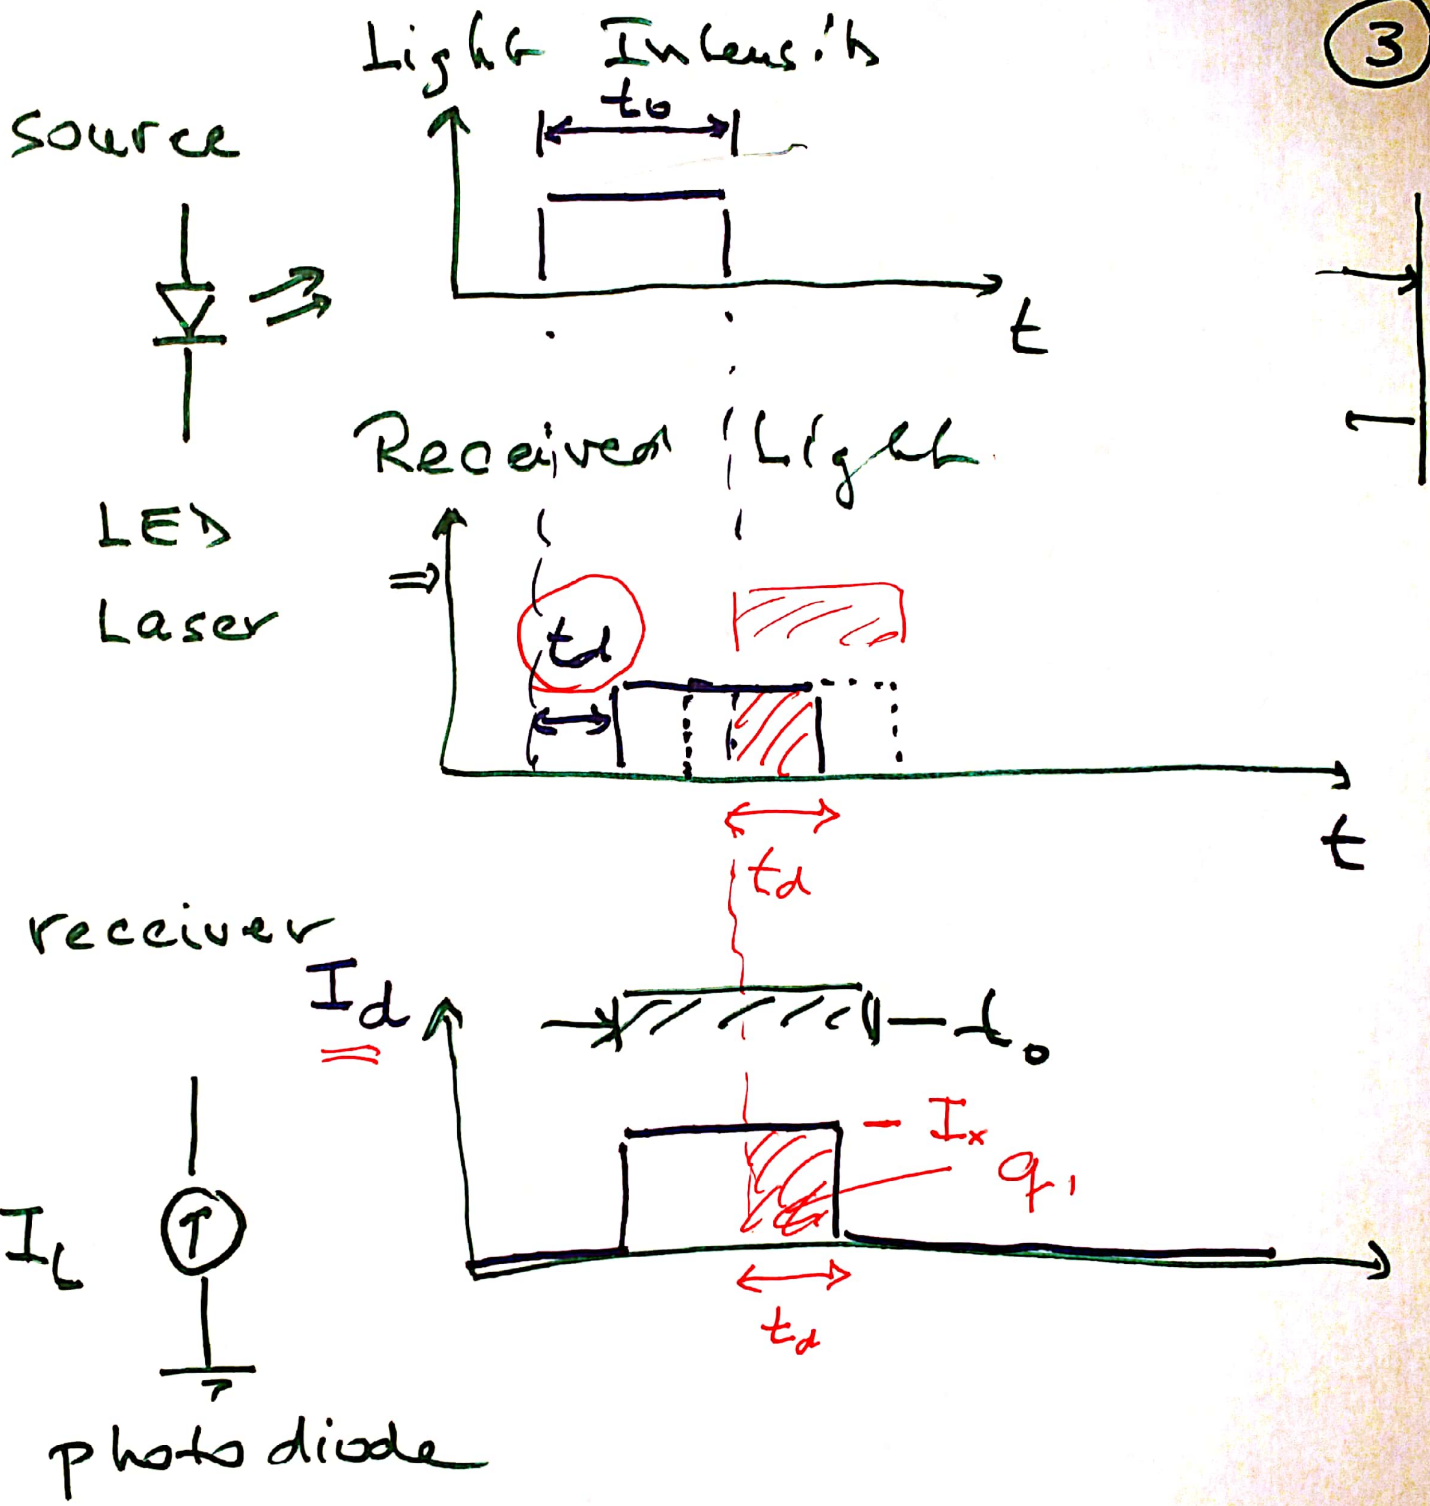 3
Light Intensity
t₀
source
t
Received Light
LED
Laser
td
t
td
receiver
Id
t₀
Ix
q₁
IL
td
photodiode